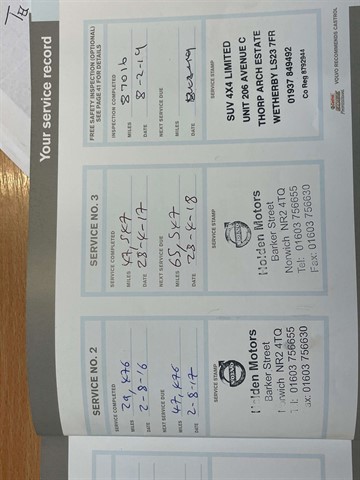 Your service record
SERVICE NO. 2
SERVICE COMPLETED
MILES 29,476
DATE 2-8-16
NEXT SERVICE DUE
MILES 47,476
DATE 2-8-17
SERVICE STAMP
VOLVO
Holden Motors
Barker Street
Norwich NR2 4TQ
Tel: 01603 756655
Fax: 01603 756630
SERVICE NO. 3
SERVICE COMPLETED
MILES 47,547
DATE 28-4-17
NEXT SERVICE DUE
MILES 65,547
DATE 28-4-18
SERVICE STAMP
VOLVO
Holden Motors
Barker Street
Norwich NR2 4TQ
Tel: 01603 756655
Fax: 01603 756630
FREE SAFETY INSPECTION (OPTIONAL)
SEE PAGE 41 FOR DETAILS
INSPECTION COMPLETED
MILES 87016
DATE 8-2-19
NEXT SERVICE DUE
MILES
DATE
SERVICE STAMP
SUV 4X4 LIMITED
UNIT 206 AVENUE C
THORP ARCH ESTATE
WETHERBY LS23 7FR
01937 849492
Co Reg 8792944
VOLVO RECOMMENDS CASTROL